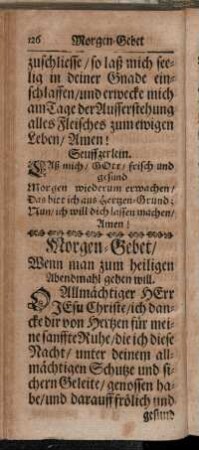 126 Morgen-Gebet
zuschliesse / so laß mich see-
lig in deiner Gnade ein-
schlaffen / und erwecke mich
am Tage der Aufferstehung
alles Fleisches zum ewigen
Leben / Amen!
Seuffzerlein.
LAß mich / GOtt / frisch und
gesund
Morgen wiederum erwachen /
Das bitt ich aus Hertzen-Grund;
Nun / ich will dich lassen machen /
Amen!
Morgen-Gebet /
Wenn man zum heiligen
Abendmahl gehen will.
O Allmächtiger HErr
JEsu Christe / ich dan-
cke dir von Hertzen für mei-
ne sanffte Ruhe / die ich diese
Nacht / unter deinem all-
mächtigen Schutze und si-
chern Geleite / genossen ha-
be / und darauff frölich und
gesund